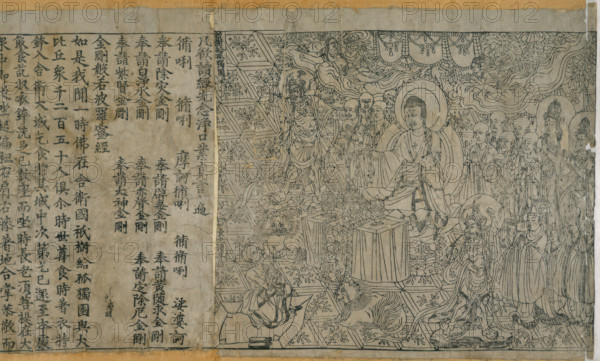 凡欲讀經先念淨口業真言一遍
脩唎 脩唎 摩訶脩唎 脩脩唎 娑婆訶
奉請除灾金剛 奉請辟毒金剛 奉請黃隨求金剛
奉請白淨水金剛 奉請赤聲金剛 奉請定除厄金剛
奉請紫賢金剛 奉請大神金剛
金剛般若波羅蜜經
如是我聞一時佛在舍衛國祇樹給孤獨園與大
比丘衆千二百五十人俱尒時世尊食時著衣持
鉢入舍衛大城乞食於其城中次第乞已還至本處
飯食訖收衣鉢洗足已敷座而坐時長老須菩提在大
衆中即從座起偏袒右肩右膝著地合掌恭敬而
PHOTO12